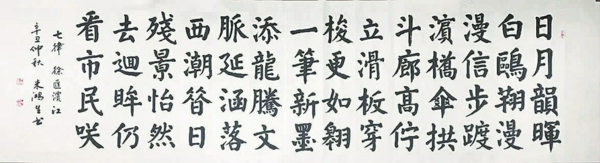 日月韻暉
白鷗翔漫
漫信步踱
濱橋傘拱
斗廊高佇
立滑板穿
梭更如翱
一筆新墨
添龍騰文
脈延涵落
西潮答日
殘景怡然
去迴眸仍
看市民咲
七律 徐匯濱江
辛丑仲秋 朱鴻生書